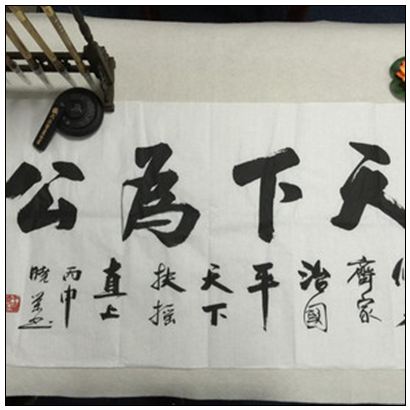 天下為公
齊家
治國
平
天下
扶搖
直上
丙申
曉